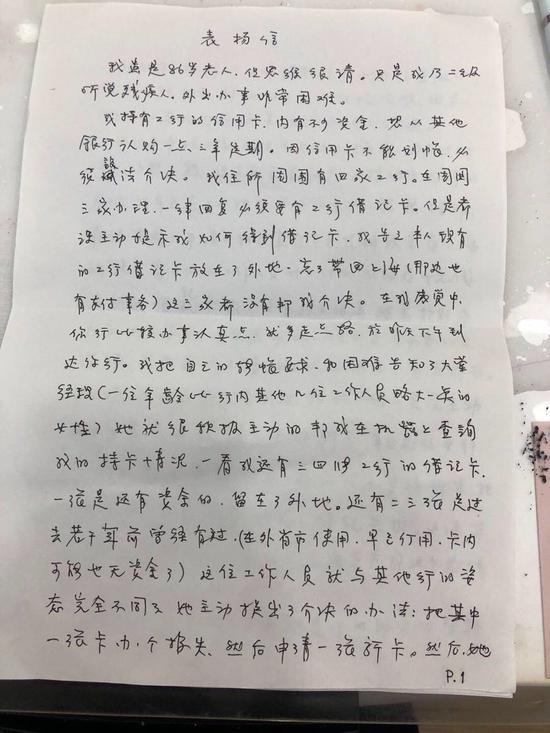 表扬信
我虽是86岁老人,但思维很清。只是我乃二级
听说残疾人。外出办事非常困难。
我持有工行的信用卡,内有不少资金,想从其他
银行认购一点三年定期。因信用卡不能划帐,必
须设法介决。我住所周围有四家工行。在周围
三家办理,一律回复必须要有工行借记卡。但是都
没主动提示我如何得到借记卡,我告之本人现有
的工行借记卡放在了外地,忘了带回上海(那边也
有支付事务)这三家都没有帮我介决。在我感觉中,
你行比较办事认真点,就多走点路,于昨天下午到
达你行。我把自己的转帐要求,和困难告知了大堂
经理(一位年龄比行内其他几位工作人员略大一点的
女性)她就很积极主动的帮我在机器上查询
我的持卡情况,一看我还有三四张工行的借记卡,
一张是还有资金的,留在了外地。还有二三张是过
去若干年前曾经有过,(在外省市使用,早已停用,卡内
可能也无资金了)这位工作人员就与其他行的姿
态完全不同了她主动提出了介决的办法:把其中
一张卡办个报失、然后申请一张新卡。然后,她
P.1